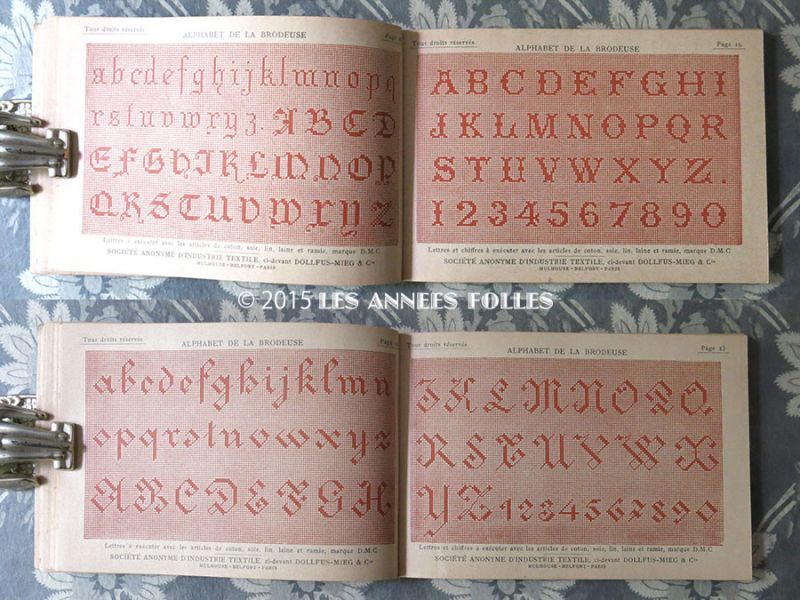 Tous droits réservés
ALPHABET DE LA BRODEUSE
abcdefghijklmnopq
rstuvwxyz. ABCD
EFGHIJKLMNOP
QRSTUVWXYZ
Lettres à exécuter avec les articles de coton, soie, lin, laine et ramie, marque D.M.C
SOCIÉTÉ ANONYME D'INDUSTRIE TEXTILE, ci-devant DOLLFUS-MIEG & Cie
MULHOUSE-BELFORT-PARIS
Tous droits réservés
ALPHABET DE LA BRODEUSE
ABCDEFGHI
JKLMNOPQR
STUVWXYZ.
1234567890
Lettres et chiffres à exécuter avec les articles de coton, soie, lin, laine et ramie, marque D.M.C
SOCIÉTÉ ANONYME D'INDUSTRIE TEXTILE, ci-devant DOLLFUS-MIEG & Cie
MULHOUSE-BELFORT-PARIS
© 2015 LES ANNEES FOLLES
Tous droits réservés
ALPHABET DE LA BRODEUSE
abcdefghijklmn
opqrstuvwxyz
ABCDEFGH
Lettres à exécuter avec les articles de coton, soie, lin, laine et ramie, marque D.M.C
SOCIÉTÉ ANONYME D'INDUSTRIE TEXTILE, ci-devant DOLLFUS-MIEG & Cie
MULHOUSE-BELFORT-PARIS
Tous droits réservés
ALPHABET DE LA BRODEUSE
IKLMNOPQ
RSTUVWX
YZ1234567890
Lettres et chiffres à exécuter avec les articles de coton, soie, lin, laine et ramie, marque D.M.C
SOCIÉTÉ ANONYME D'INDUSTRIE TEXTILE, ci-devant DOLLFUS-MIEG & Cie
MULHOUSE-BELFORT-PARIS